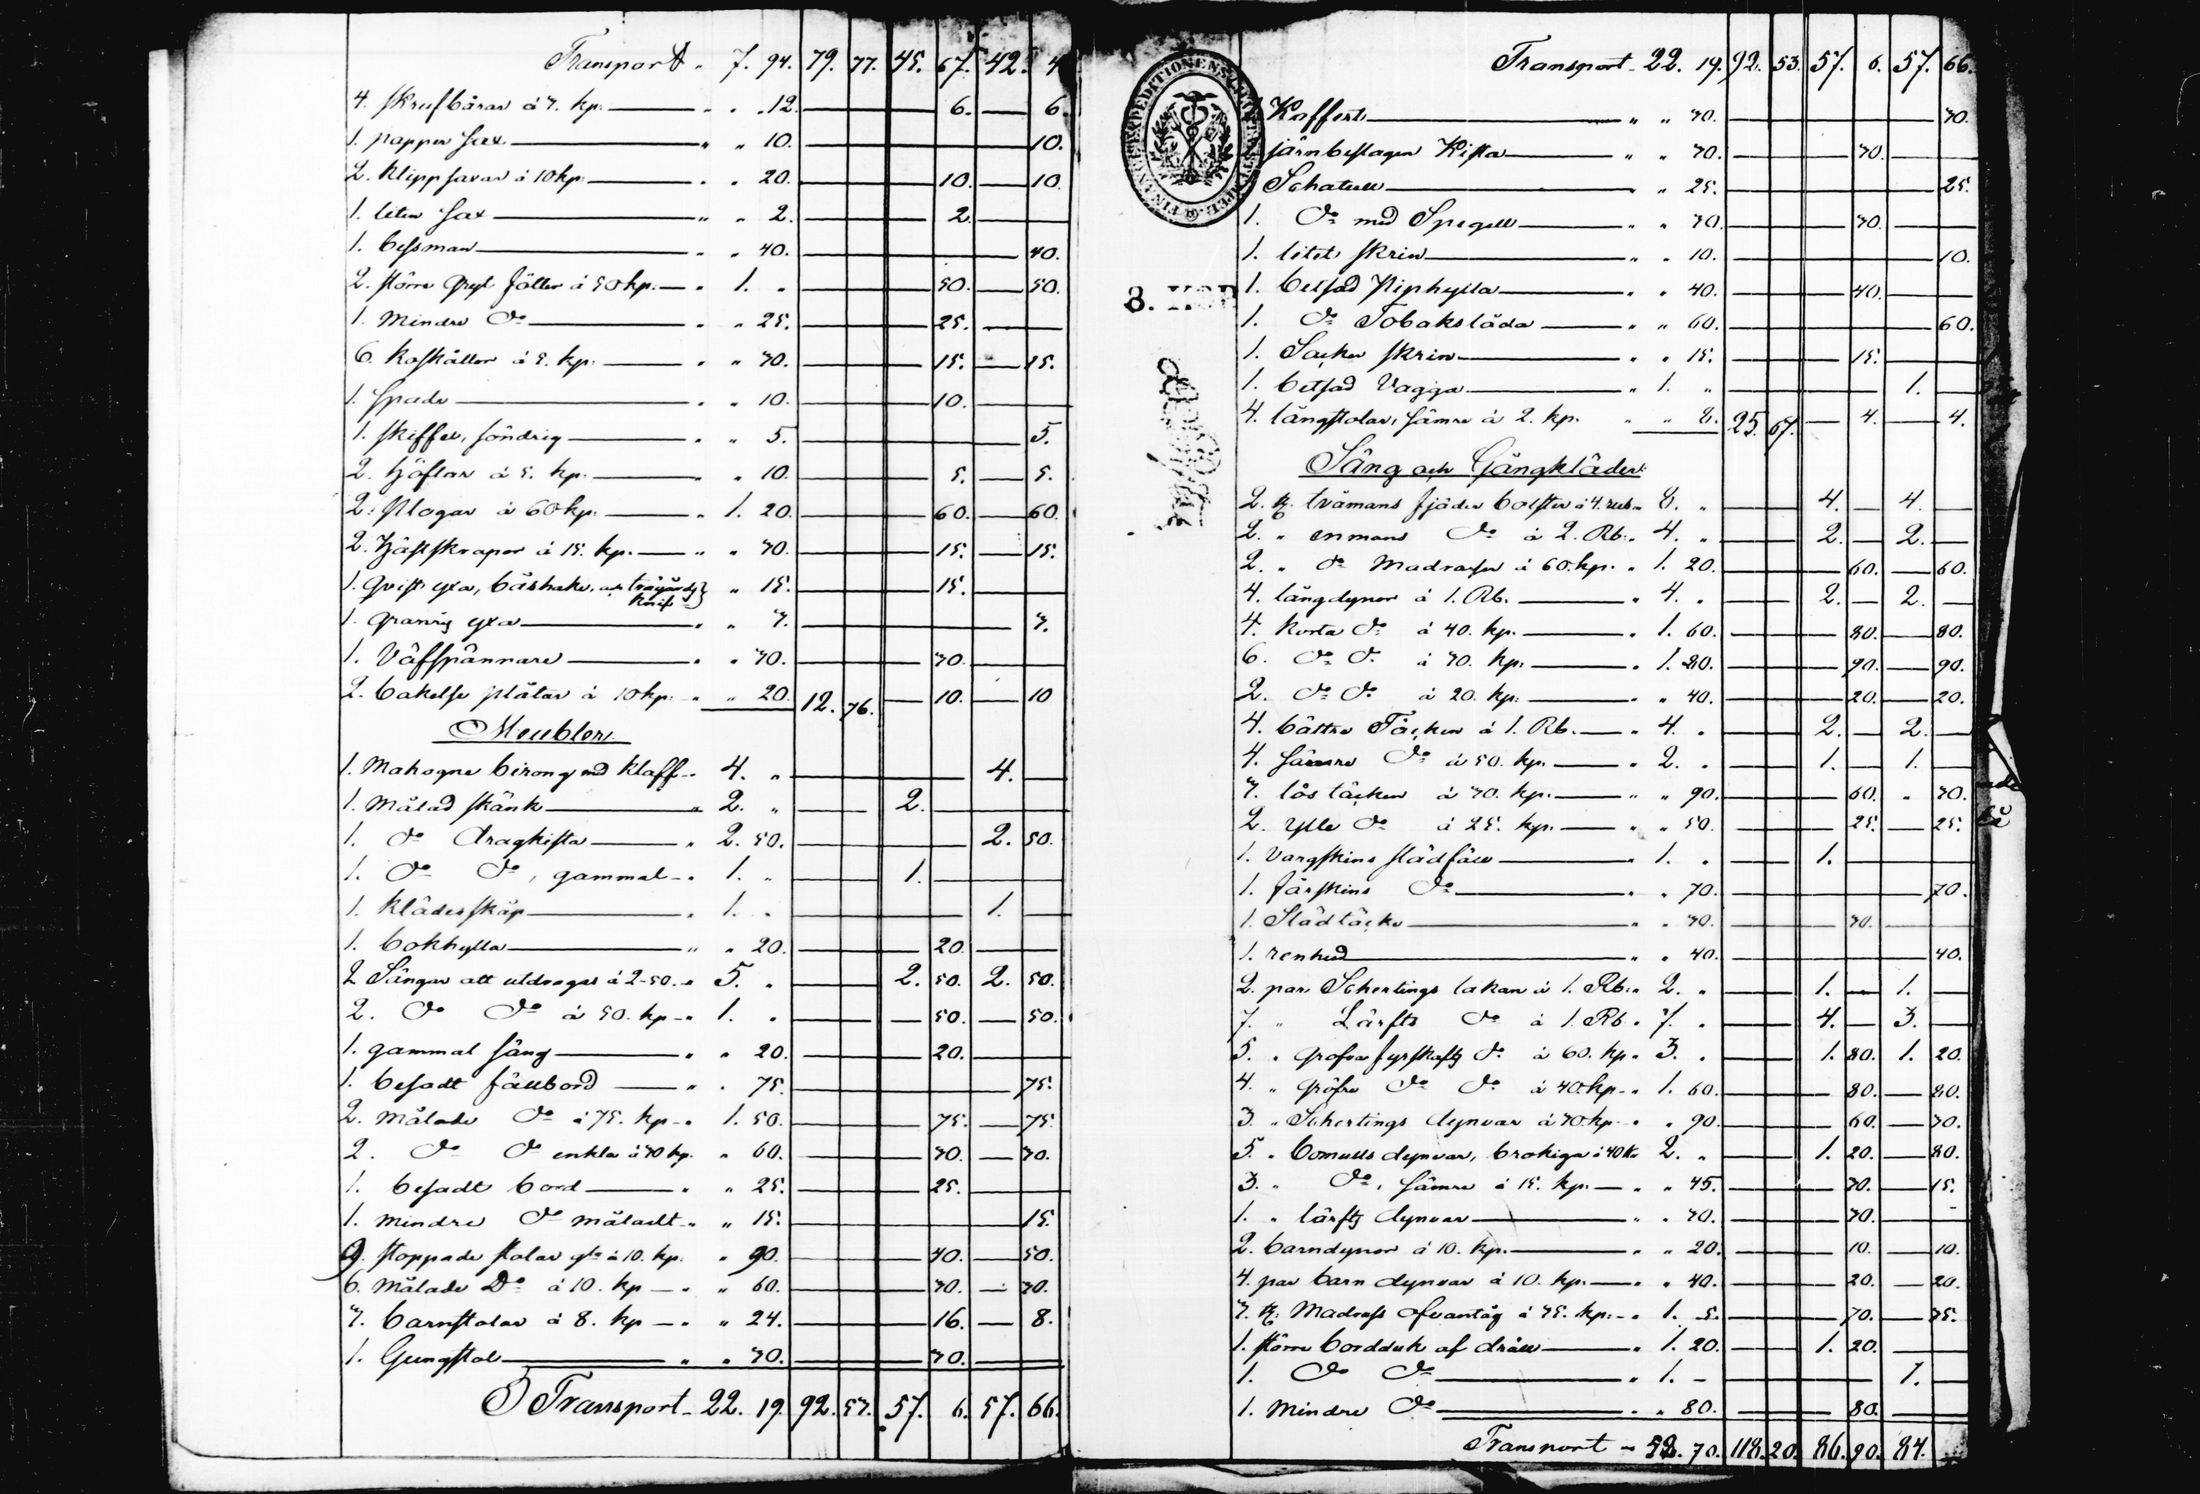 Transport " 7. 94. 79. 77. 45. 67. 42. 4
4. skrufbårar á 3. kp. " " 12. 6. 6.
1. papper sax " " 10. 10.
2. klippsaxar á 10 kp. " " 20. 10. 10.
1. liten sax " " 2. 2.
1. bessman " " 40. 40.
2. större fällor á 50 kp. " 1. " 50. 50.
1. mindre Do " " 25. 25.
6. koskällor á 5. kp. " " 30. 15. 15.
1. spade " " 10. 10.
1. skiffel, söndrig " " 5. 5.
2. á 5. kp. " " 10. 5. 5.
2. Plogar á 60 kp. " 1. 20. 60. 60.
2. Hästskrapor á 15. kp. " " 30. 15. 15.
1. qvist yxa, båshake, och trägårds knif " " 15. 15.
1. yxa " " 3. 3.
1. Väfspännare " " 30. 30.
2. bakelse plåtar á 10 kp. " " 20. 12. 76. 10. 10
Meubler.
1. Mahogne birong med klaff " 4. " 4.
1. Målad skänk " 2. " 2.
1. Do dragkista " 2. 50. 2. 50.
1. Do Do, gammal " 1. " 1.
1. klädesskåp " 1. " 1.
1. bokhylla " " 20. 20.
2 Sängar att utdragas á 2-50. " 5. " 2. 50. 2. 50.
2. Do Do á 50. kp " 1. " 50. 50.
1. gammal säng " " 20. 20.
1. besadt fällbord " " 75. 75.
2. målade Do á 75. kp " 1. 50. 75. 75.
2. Do Do enkla á 30 kp. " 60. 30. 30.
1. besadt bord " " 25. 25.
1. mindre Do måladt " " 15. 15.
9. stoppade stolar gla á 10. kp. " 90. 40. 50.
6. målade Do á 10. kp " " 60. 30. 30.
3. barnstolar á 8. kp " " 24. 16. 8.
1. Gungstol " " 30. 30.
Transport 22. 19. 92. 53. 57. 6. 57. 66.
Transport 22. 19. 92. 53. 57. 6. 57. 66.
1. Koffert " " 30. 30.
1. järnbeslagen Kista " " 30. 30.
1. Schatull " " 25. 25.
1. Do med Spegell " " 30. 30.
1. litet skrin " " 10. 10.
1. betsad Piphylla " " 40. 40.
1. Do Tobakslåda " " 60. 60.
1. Socker skrin " " 15. 15.
1. betsad Vagga " 1. " 1.
4. långstolar, sämre á 2. kp. " " 8. 25. 67. 4. 4.
Säng och Gångkläder
2. st. tvåmans fjäder bolster á 4. rub " 8. " 4. 4.
2. " enmans Do á 2. Rb. " 4. " 2. 2.
2. " Do Madrasser á 60. kp. " 1. 20. 60. 60.
4. långdynor á 1. Rb. " 4. " 2. 2.
4. korta Do á 40. kp. " 1. 60. 80. 80.
6. Do Do á 30. kp. " 1. 80. 90. 90.
2. Do Do á 20. kp. " " 40. 20. 20.
4. bättre Täcken á 1. Rb. " 4. " 2. 2.
4. sämre Do á 50. kp. " 2. " 1. 1.
3. lös täcken á 30. kp. " " 90. 60. " 30.
2. ylle Do á 25. kp. " " 50. 25. 25.
1. vargskins slädfäll " 1. " 1.
1. fårskins Do " " 70. 70.
1. Slädtäcke " " 30. 30.
1. renhud " " 40. 40.
2. par Schertings lakan á 1. Rb. " 2. " 1. 1.
7. " Lärfts Do á 1. Rb. " 7. " 4. 3.
5. " grofva fyrskafts Do á 60. kp. " 3. " 1. 80. 1. 20.
4. " gröfre Do Do á 40 kp. " 1. 60. 80. 80.
3. " Schertings dynvar á 30 kp. " " 90. 60. 30.
5. " bomulls dynvar, brokiga á 40 k. " 2. " 1. 20. 80.
3. " Do, sämre á 15. kp. " " 45. 30. 15.
1. " lärfts dynvar " " 30. 30.
2. barndynor á 10. kp. " " 20. 10. 10.
4. par barn dynvar á 10. kp. " " 40. 20. 20.
3. st. Madrass á 35. kp. " 1. 5. 70. 35.
1. större bordduk af dräll " 1. 20. 1. 20.
1. Do Do " 1. - 1.
1. mindre Do " " 80. 80.
Transport 58. 70. 118. 20. 86. 90. 84.